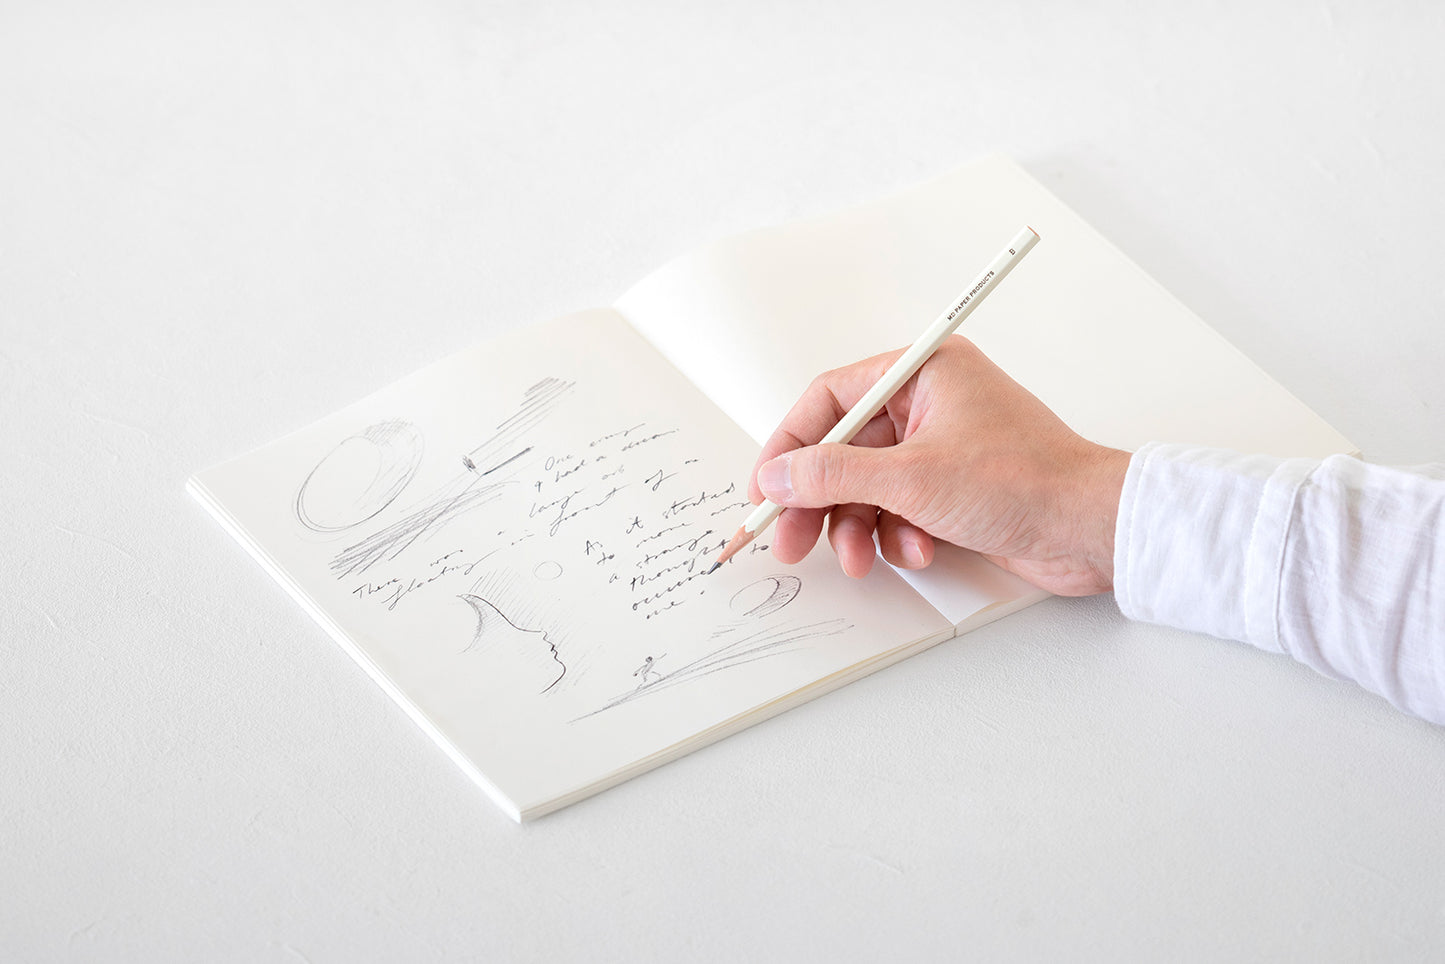 One
I had a dream.
There was a large orb
floating in front of
As it started
to move
a strange
thought
occurred to
me.
MD PAPER PRODUCTS B